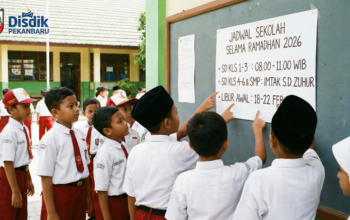 Disdik
PEKANBARU
JADWAL SEKOLAH
SELAMA RAMADHAN 2026
• SD KLS 1-3 : 08.00 - 11.00 WIB
• SD KLS 4-6 & SMP : IMTAK S.D. ZUHUR
• LIBUR AWAL : 18-22 FEB